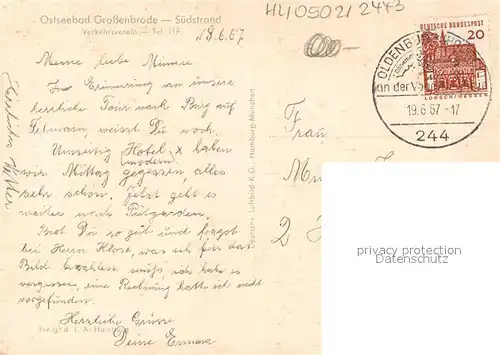 Ostseebad-Großenbrode — Südstrand
Verkehrsverein — Tel 119
HL105021 2443
18.6.67
Meine liebe Mimmie
In Erinnerung an unsere
herrliche Tour nach Burg auf
Fehmarn, weisst Du noch.
Umseitig Hotel x haben
(modern)
wir Mittag gegessen alles
sehr schön. Jetzt geht es
weiter nach Puttgarden.
Bist Du so gut und fragst
bei Herrn Klose, was ich für das
Bild bezahlen muß, ich habe es
vergessen, eine Rechnung hatte ich nicht
vorgefunden.
Herzliche Grüsse
Deine Emma
Herzlichst
Freigt d. L. A. Hamburg
Deutsche Luftbild K.G., Hamburg-München
Frau
2
DEUTSCHE BUNDESPOST
20
LORSCH/HESSEN
OLDENBURG
an der
19.6.67-17
244
privacy protection
Datenschutz